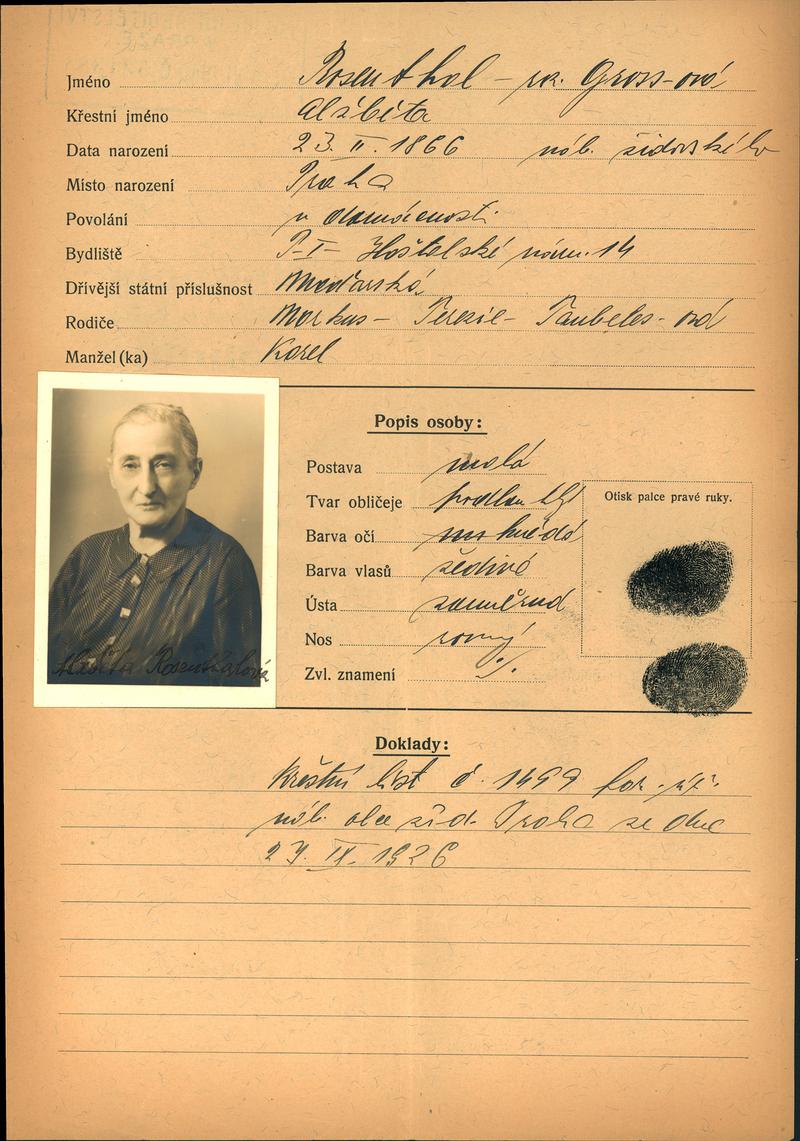 Jméno Rosenthal – roz. Gross-ová
Křestní jméno Alžběta
Data narození 23. II. 1866 náb. židovského
Místo narození Praha
Povolání v domácnosti
Bydliště P-I- Haštalské nám. 14
Dřívější státní příslušnost Maďarská
Rodiče Markus – Terezie – Taubeles-ová
Manžel (ka) Karel
Popis osoby:
Postava malá
Tvar obličeje
Otisk palce pravé ruky.
Barva očí hnědá
Barva vlasů šedivé
Ústa
Nos rovný
Zvl. znamení ./.
Alžběta Rosenthalová
Doklady:
Křestní list č. 1499
náb. obce žid. Praha ze dne
27. IX. 1926